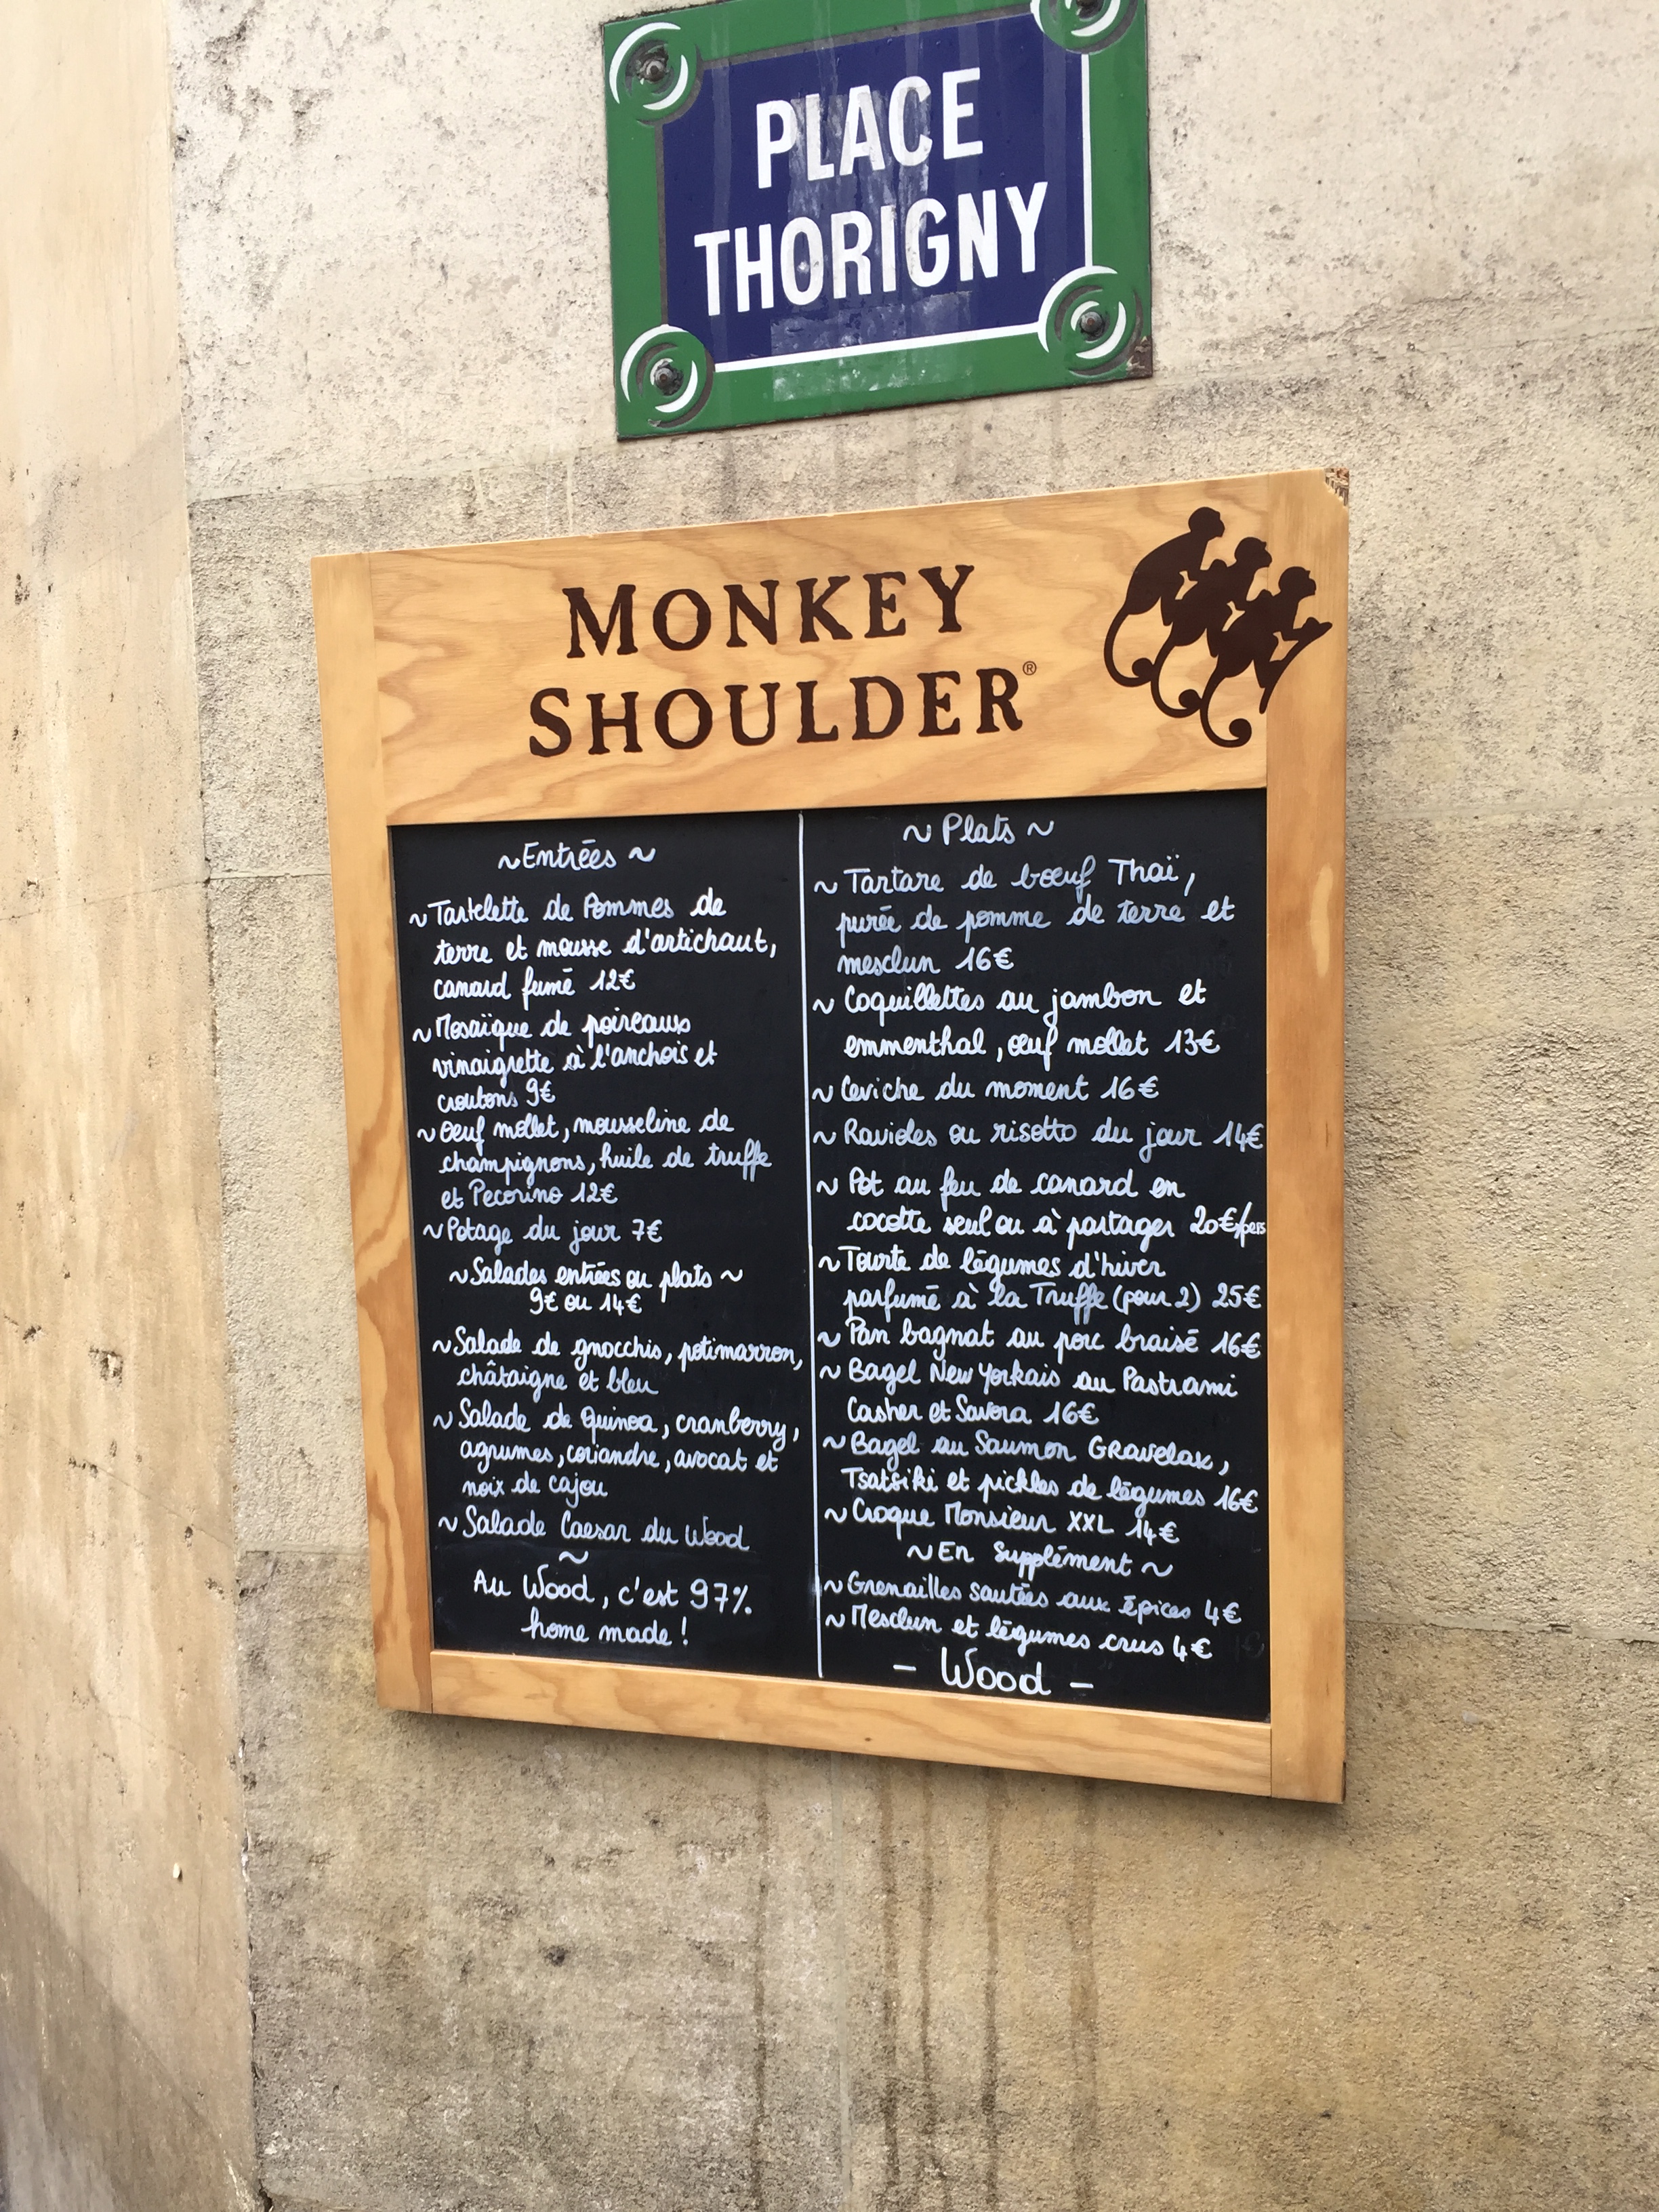 PLACE
THORIGNY
MONKEY
SHOULDER®
~ Entrées ~
~ Tartelette de Pommes de
terre et mousse d'artichaut,
canard fumé 12€
~ Mosaïque de poireaux
vinaigrette à l'anchois et
croutons 9€
~ Oeuf mollet, mousseline de
champignons, huile de truffe
et Pecorino 12€
~ Potage du jour 7€
~ Salades entrées ou plats ~
9€ ou 14€
~ Salade de gnocchis, potimarron,
châtaigne et bleu
~ Salade de Quinoa, cranberry,
agrumes, coriandre, avocat et
noix de cajou
~ Salade Caesar du Wood
~
Au Wood, c'est 97%
home made !
~ Plats ~
~ Tartare de bœuf Thaï,
purée de pomme de terre et
mesclun 16€
~ Coquillettes au jambon et
emmenthal, œuf mollet 13€
~ Ceviche du moment 16€
~ Ravioles ou risotto du jour 14€
~ Pot au feu de canard en
cocotte seul ou à partager 20€/pers
~ Tourte de légumes d'hiver
parfumé à la Truffe (pour 2) 25€
~ Pan bagnat au porc braisé 16€
~ Bagel New Yorkais au Pastrami
Casher et Savora 16€
~ Bagel au Saumon Gravelax,
Tsatsiki et pickles de légumes 16€
~ Croque Monsieur XXL 14€
~ En Supplément ~
~ Grenailles sautées aux épices 4€
~ Mesclun et légumes crus 4€
- Wood -